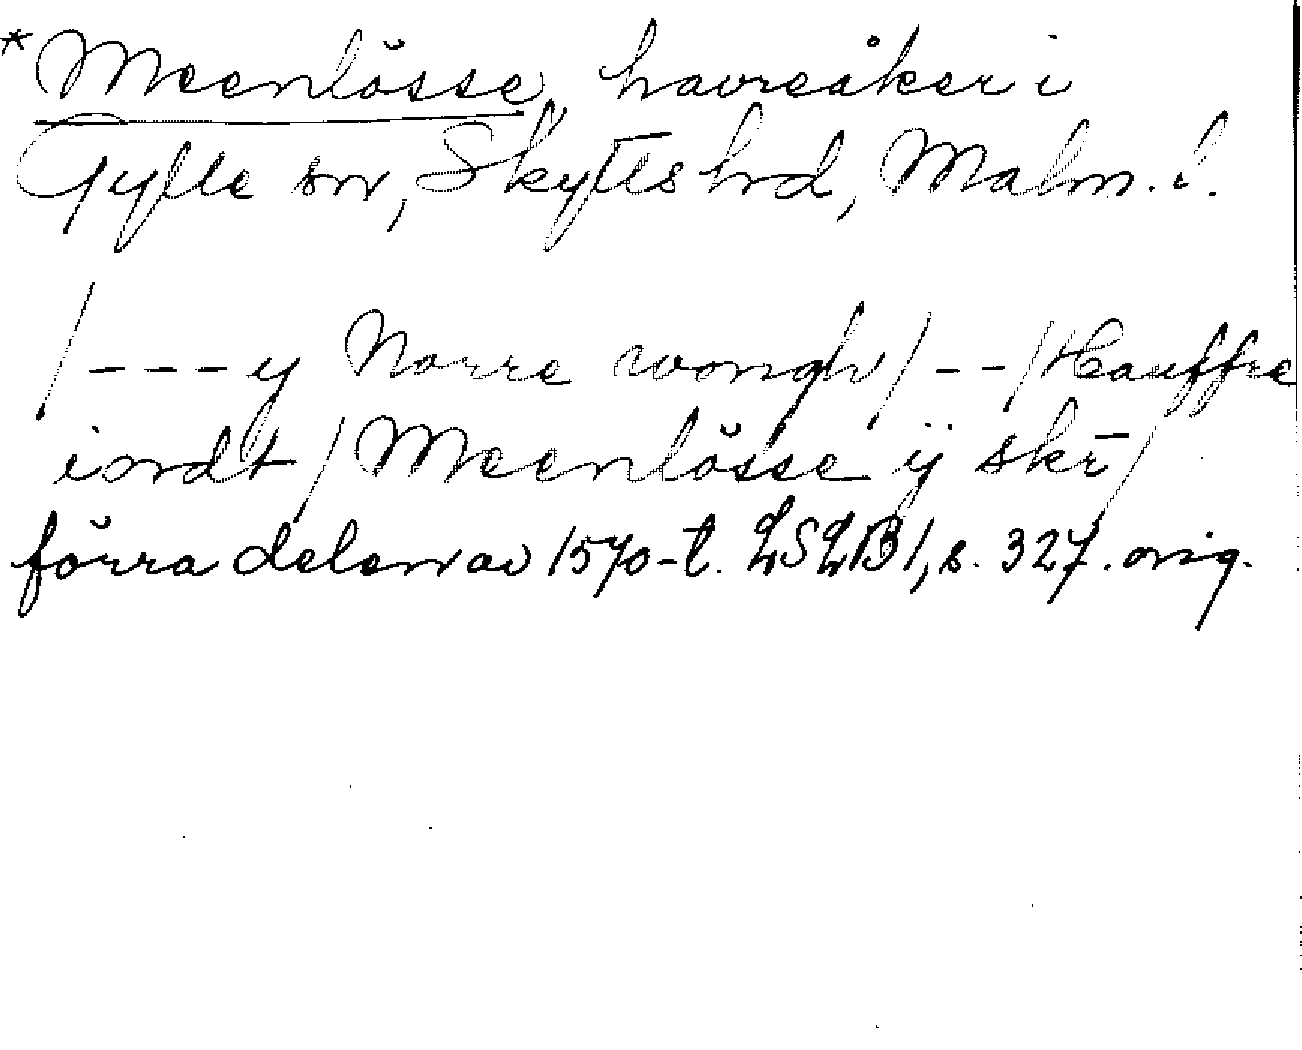 *Meenlösse, havreåker i
Gylle sn, Skytts hd, Malm. l.
/---y Norre wongh/--/Hauffre
iordt/Meenlösse ij skr̄/
förra delen av 1570-t. LSLB1, s. 327. orig.